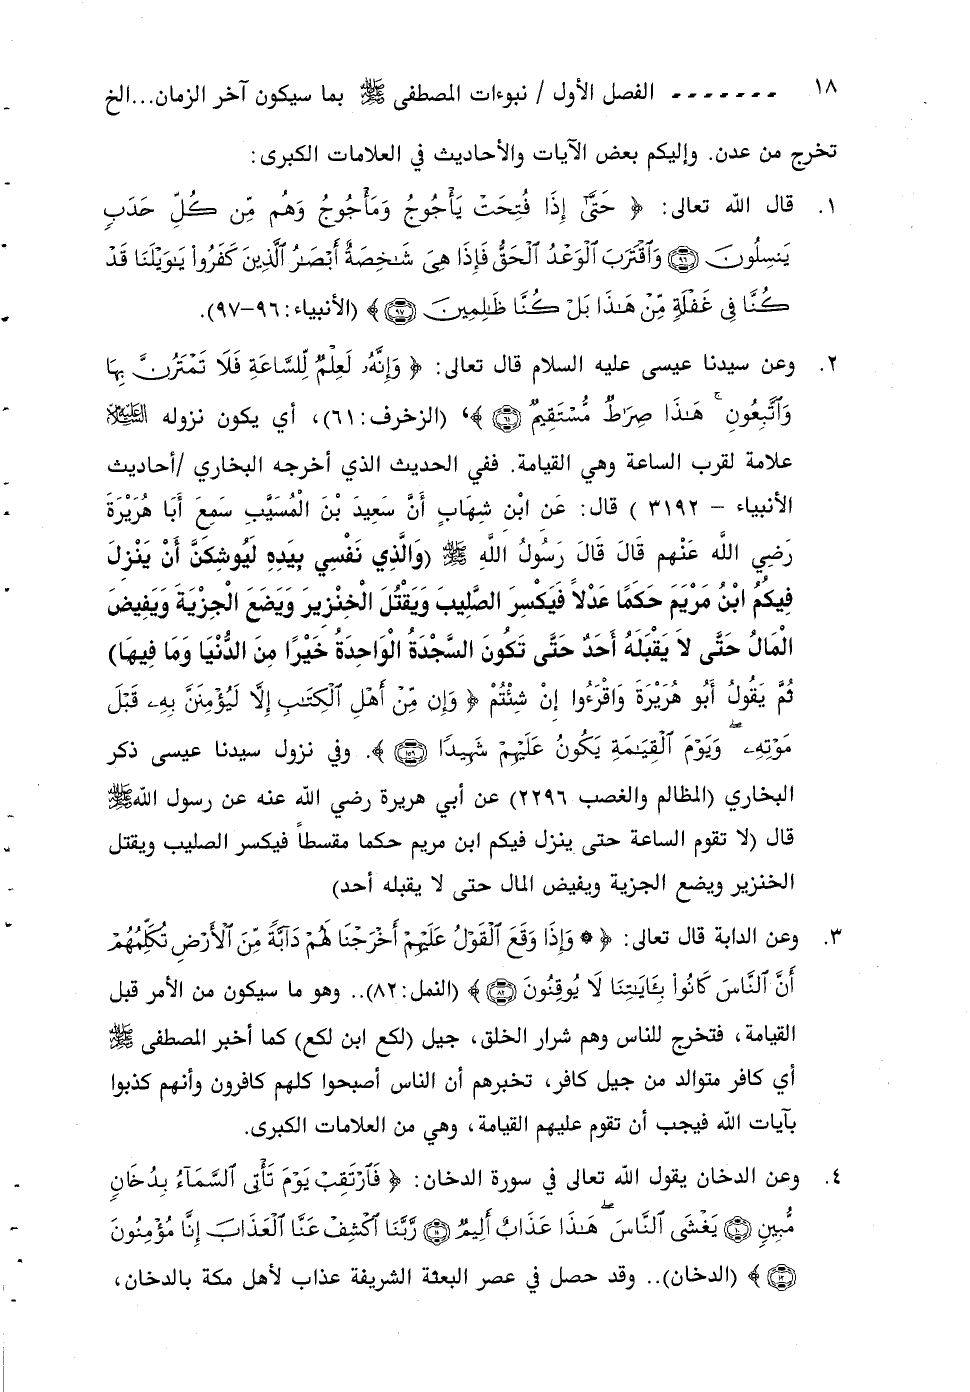 ١٨ ------- الفصل الأول / نبوءات المصطفى ﷺ بما سيكون آخر الزمان...الخ
تخرج من عدن. وإليكم بعض الآيات والأحاديث في العلامات الكبرى:
١. قال الله تعالى: ﴿ حَتَّىٰٓ إِذَا فُتِحَتْ يَأْجُوجُ وَمَأْجُوجُ وَهُم مِّن كُلِّ حَدَبٍ
يَنسِلُونَ ۝٩٦ وَٱقْتَرَبَ ٱلْوَعْدُ ٱلْحَقُّ فَإِذَا هِىَ شَـٰخِصَةٌ أَبْصَـٰرُ ٱلَّذِينَ كَفَرُوا۟ يَـٰوَيْلَنَا قَدْ
كُنَّا فِى غَفْلَةٍ مِّنْ هَـٰذَا بَلْ كُنَّا ظَـٰلِمِينَ ۝٩٧ ﴾ (الأنبياء:٩٦-٩٧).
٢. وعن سيدنا عيسى عليه السلام قال تعالى: ﴿ وَإِنَّهُۥ لَعِلْمٌ لِّلسَّاعَةِ فَلَا تَمْتَرُنَّ بِهَا
وَٱتَّبِعُونِ ۚ هَـٰذَا صِرَٰطٌ مُّسْتَقِيمٌ ۝٦١ ﴾، (الزخرف:٦١)، أي يكون نزوله عليه السلام
علامة لقرب الساعة وهي القيامة. ففي الحديث الذي أخرجه البخاري /أحاديث
الأنبياء – ٣١٩٢ ) قال: عَن ابْن شِهَابٍ أَنَّ سَعِيدَ بْنَ الْمُسَيَّبِ سَمِعَ أَبَا هُرَيْرَةَ
رَضِي اللَّه عَنْهم قَالَ قَالَ رَسُولُ اللَّهِ ﷺ (وَالَّذِي نَفْسِي بِيَدِهِ لَيُوشِكَنَّ أَنْ يَنْزِلَ
فِيكُمُ ابْنُ مَرْيَمَ حَكَمًا عَدْلاً فَيَكْسِرَ الصَّلِيبَ وَيَقْتُلَ الْخِنْزِيرَ وَيَضَعَ الْجِزْيَةَ وَيَفِيضَ
الْمَالُ حَتَّى لاَ يَقْبَلَهُ أَحَدٌ حَتَّى تَكُونَ السَّجْدَةُ الْوَاحِدَةُ خَيْرًا مِنَ الدُّنْيَا وَمَا فِيهَا)
ثُمَّ يَقُولُ أَبُو هُرَيْرَةَ وَاقْرَءُوا إِنْ شِئْتُمْ ﴿ وَإِن مِّنْ أَهْلِ ٱلْكِتَـٰبِ إِلَّا لَيُؤْمِنَنَّ بِهِۦ قَبْلَ
مَوْتِهِۦ ۖ وَيَوْمَ ٱلْقِيَـٰمَةِ يَكُونُ عَلَيْهِمْ شَهِيدًا ۝١٥٩ ﴾. وفي نزول سيدنا عيسى ذكر
البخاري (المظالم والغصب ٢٢٩٦) عن أبي هريرة رضي الله عنه عن رسول الله ﷺ
قال (لا تقوم الساعة حتى ينزل فيكم ابن مريم حكما مقسطاً فيكسر الصليب ويقتل
الخنزير ويضع الجزية ويفيض المال حتى لا يقبله أحد)
٣. وعن الدابة قال تعالى: ﴿ ۞ وَإِذَا وَقَعَ ٱلْقَوْلُ عَلَيْهِمْ أَخْرَجْنَا لَهُمْ دَآبَّةً مِّنَ ٱلْأَرْضِ تُكَلِّمُهُمْ
أَنَّ ٱلنَّاسَ كَانُوا۟ بِـَٔايَـٰتِنَا لَا يُوقِنُونَ ۝٨٢ ﴾ (النمل:٨٢).. وهو ما سيكون من الأمر قبل
القيامة، فتخرج للناس وهم شرار الخلق، جيل (لكع ابن لكع) كما أخبر المصطفى ﷺ
أي كافر متوالد من جيل كافر، تخبرهم أن الناس أصبحوا كلهم كافرون وأنهم كذبوا
بآيات الله فيجب أن تقوم عليهم القيامة، وهي من العلامات الكبرى.
٤. وعن الدخان يقول الله تعالى في سورة الدخان: ﴿ فَٱرْتَقِبْ يَوْمَ تَأْتِى ٱلسَّمَآءُ بِدُخَانٍ
مُّبِينٍ ۝١٠ يَغْشَى ٱلنَّاسَ ۖ هَـٰذَا عَذَابٌ أَلِيمٌ ۝١١ رَّبَّنَا ٱكْشِفْ عَنَّا ٱلْعَذَابَ إِنَّا مُؤْمِنُونَ
۝١٢ ﴾ (الدخان).. وقد حصل في عصر البعثة الشريفة عذاب لأهل مكة بالدخان،